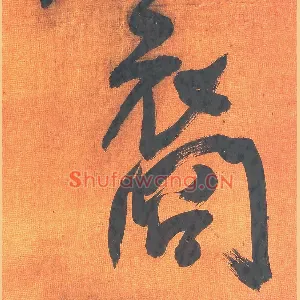 裔
Shufawang.CN